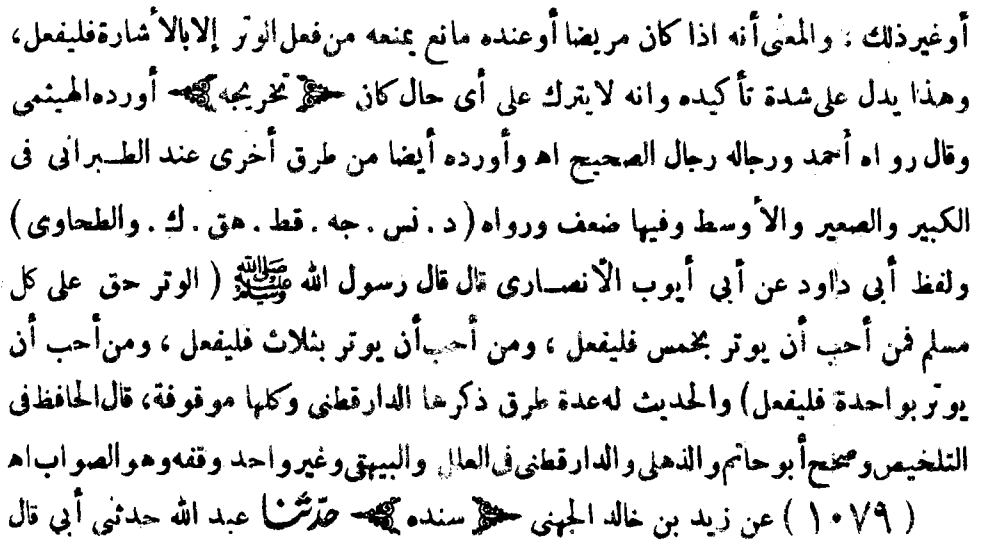 أو غير ذلك ؛ والمعنى أنه اذا كان مريضا أو عنده مانع يمنعه من فعل الوتر إلا بالأشارة فليفعل،
وهذا يدل على شدة تأكيده وانه لا يترك على أى حال كان ﴿ تخريجه ﴾ أورده الهيثمى
وقال رواه أحمد ورجاله رجال الصحيح اه وأورده أيضا من طرق أخرى عند الطبرانى فى
الكبير والصغير والأوسط وفيها ضعف ورواه (د . نس . جه . قط . هق . ك . والطحاوى)
ولفظ أبى داود عن أبى أيوب الأنصارى قال قال رسول الله ﷺ ( الوتر حق على كل
مسلم فمن أحب أن يوتر بخمس فليفعل ، ومن أحب أن يوتر بثلاث فليفعل ، ومن أحب أن
يوتر بواحدة فليفعل) والحديث له عدة طرق ذكرها الدارقطنى وكلها موقوفة، قال الحافظ فى
التلخيص وصحح أبو حاتم والذهلى والدارقطنى فى العلل والبيهقى وغير واحد وقفه وهو الصواب اه
( ١٠٧٩ ) عن زيد بن خالد الجهنى ﴿ سنده ﴾ حدثنا عبد الله حدثنى أبى قال